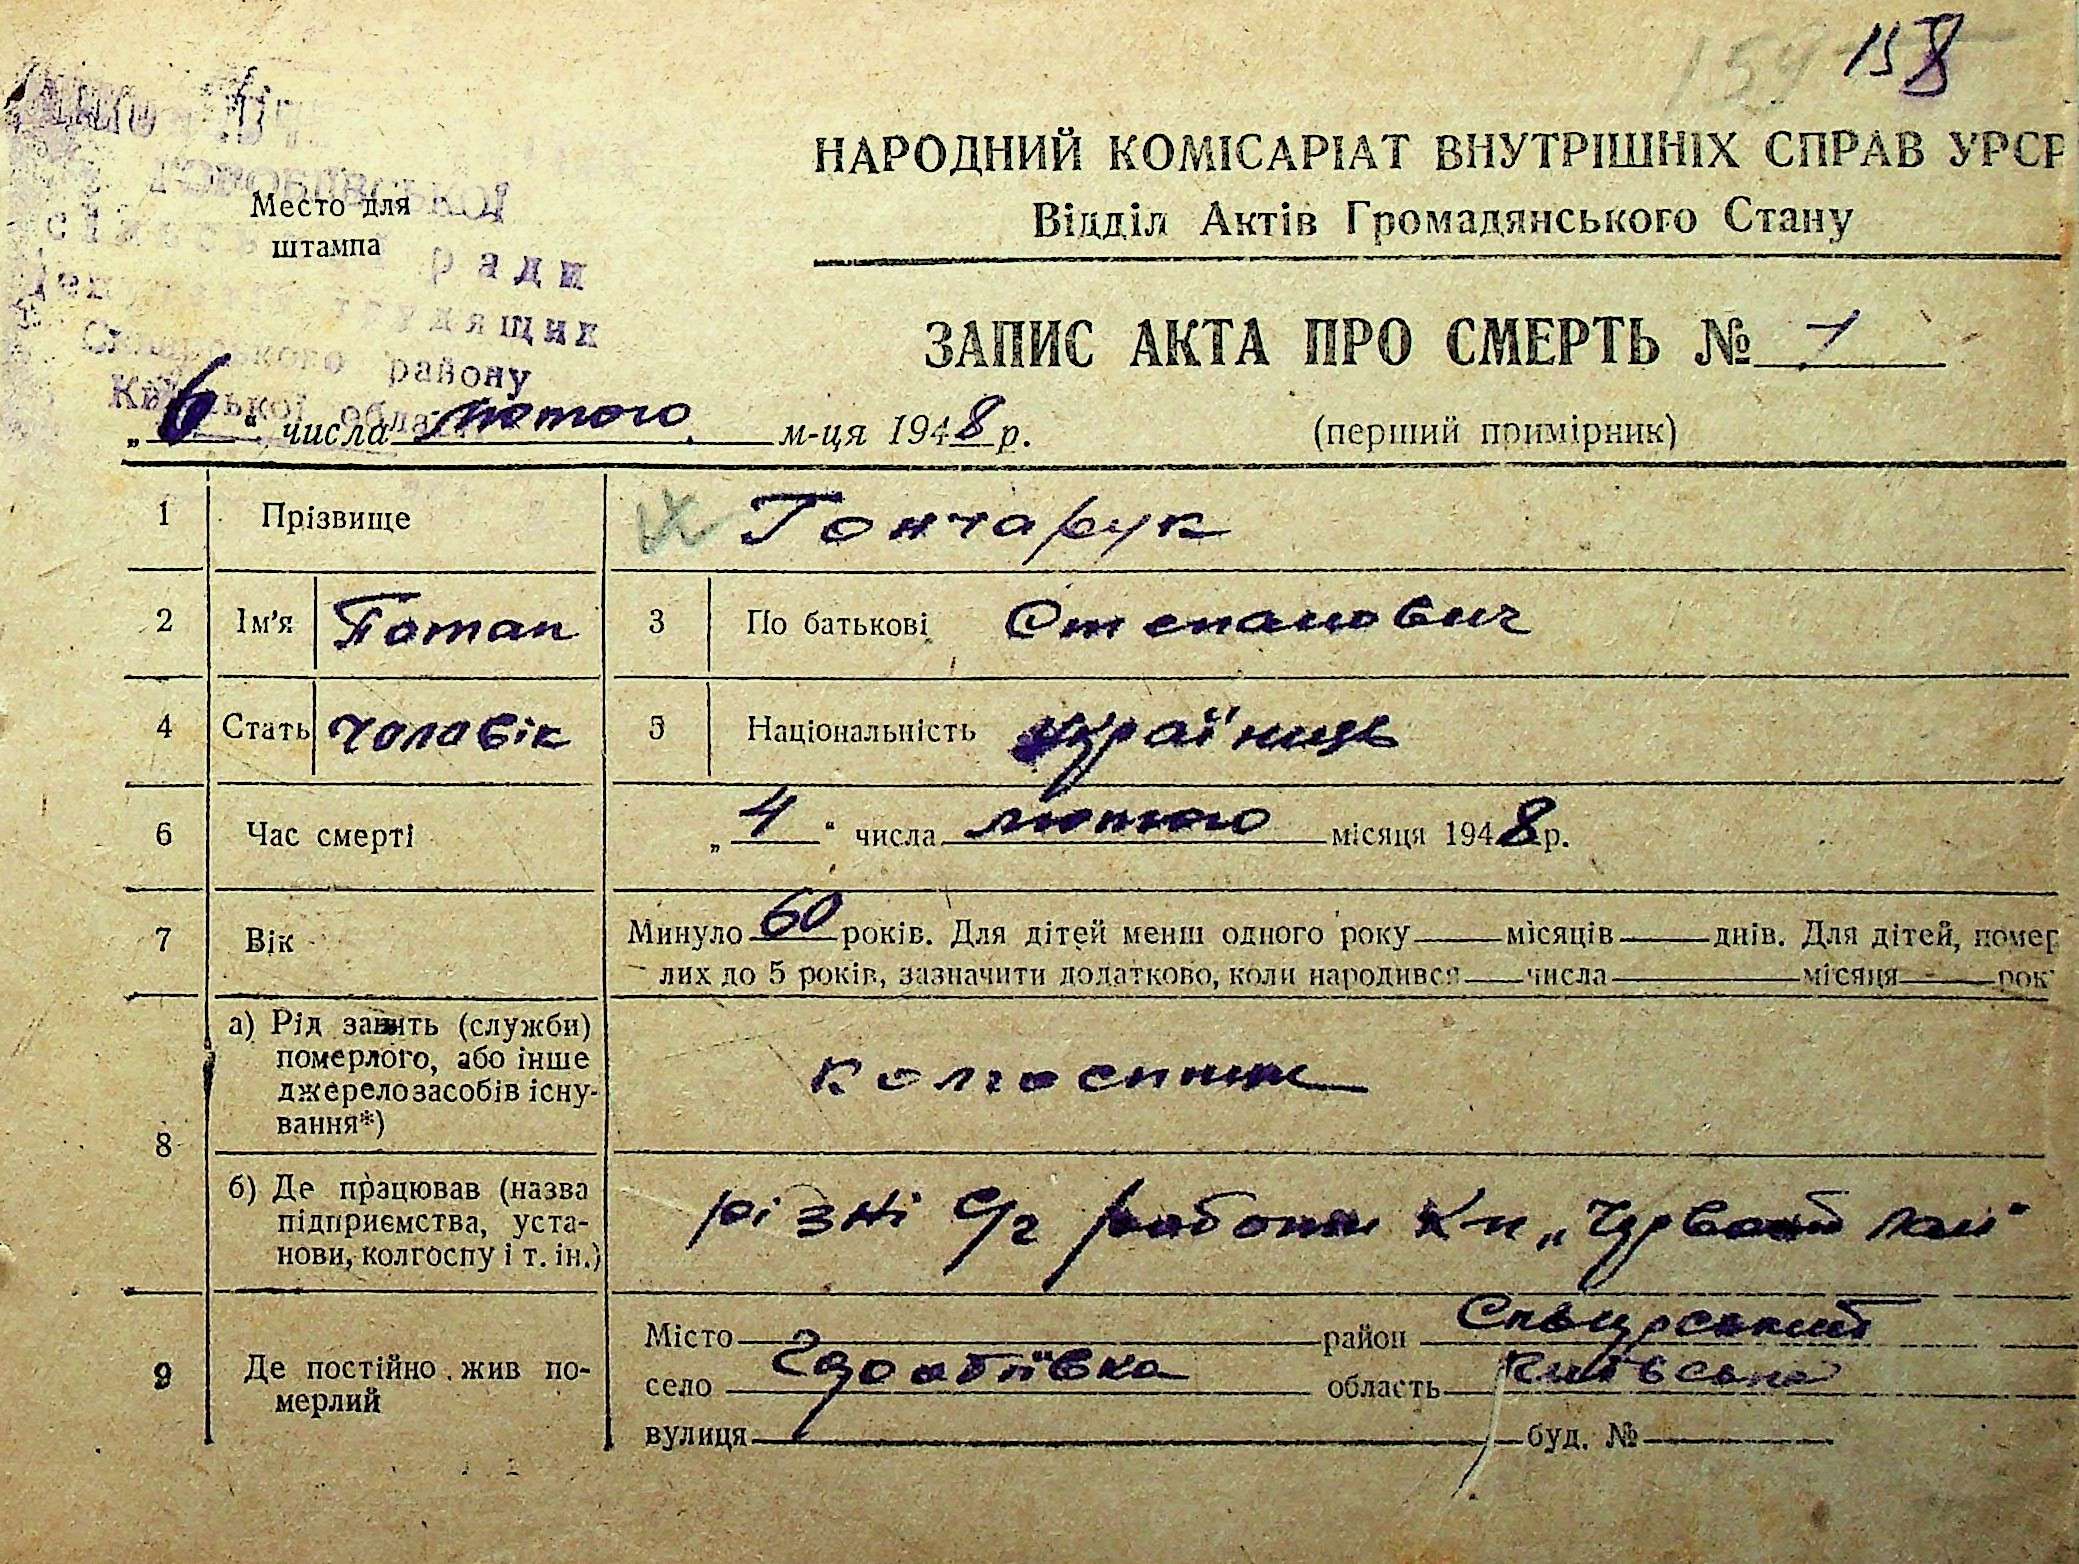 159 158
НАРОДНИЙ КОМІСАРІАТ ВНУТРІШНІХ СПРАВ УРСР
Відділ Актів Громадянського Стану
Место для
штампа
ради
трудящих
району
ЗАПИС АКТА ПРО СМЕРТЬ № 1
„6“ числа лютого м-ця 1948 р.
(перший примірник)
1 Прізвище Гончарук
2 Ім'я Потап 3 По батькові Степанович
4 Стать чоловік 5 Національність українець
6 Час смерті „4“ числа лютого місяця 1948 р.
7 Вік Минуло 60 років. Для дітей менш одного року місяців днів. Для дітей, помер
лих до 5 років, зазначити додатково, коли народився числа місяця рок
8 а) Рід занять (служби)
померлого, або інше
джерело засобів існу-
вання*)
колгоспник
б) Де працював (назва
підприємства, уста-
нови, колгоспу і т. ін.)
різні с/г работи К-п „Червоний лан"
9 Де постійно жив по-
мерлий
Місто район Сквирський
село область Київська
вулиця буд. №